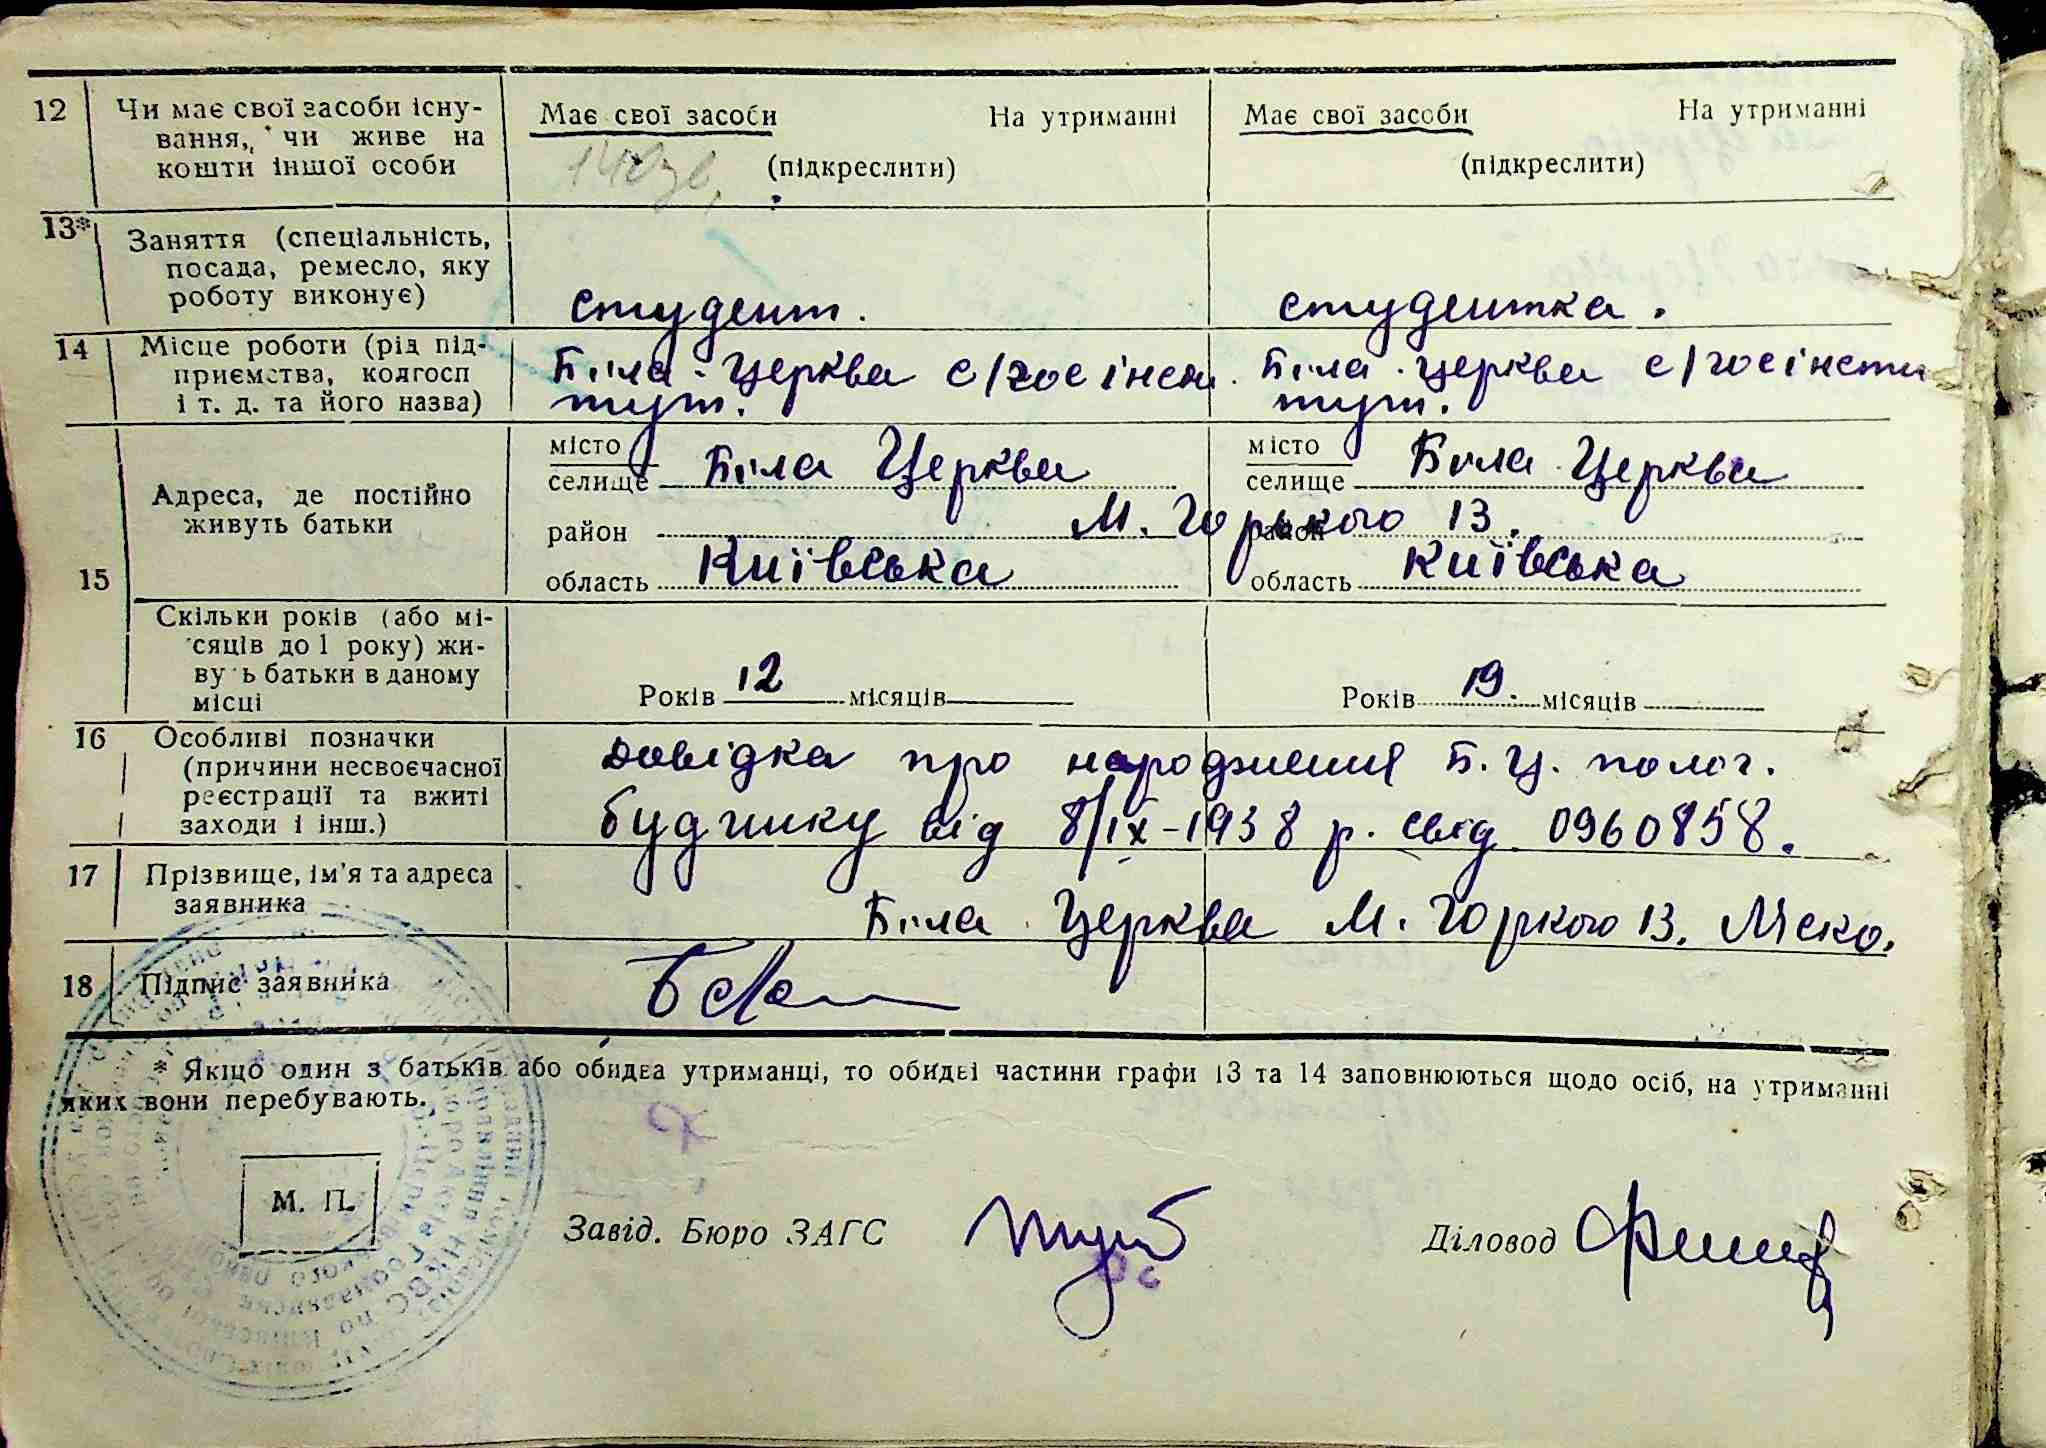 12 Чи має свої засоби існу- Має свої засоби На утриманні Має свої засоби На утриманні
вання, чи живе на
кошти іншої особи (підкреслити) (підкреслити)
13* Заняття (спеціальність,
посада, ремесло, яку
роботу виконує) студент. студентка.
14 Місце роботи (рід під- Біла-Церква с/госінсти Біла-Церква с/госінсти
приємства, колгосп тут. тут.
і т. д. та його назва)
15 Адреса, де постійно
живуть батьки
місто
селище Біла Церква місто
селище Біла Церква
район М. Горького 13. район
область Київська область Київська
Скільки років (або мі-
сяців до 1 року) жи-
ву ь батьки в даному
місці Років 12 місяців Років 19. місяців
16 Особливі позначки довідка про народження Б.Ц. полог.
(причини несвоєчасної
реєстрації та вжиті будинку від 8/ІХ-1938 р. свід. 0960858.
заходи і інш.)
17 Прізвище, ім'я та адреса
заявника Біла Церква М. Горкого 13.
18 Підпис заявника
* Якщо один з батьків або обидва утриманці, то обидві частини графи 13 та 14 заповнюються щодо осіб, на утриманні
яких вони перебувають.
М. П.
Завід. Бюро ЗАГС Діловод